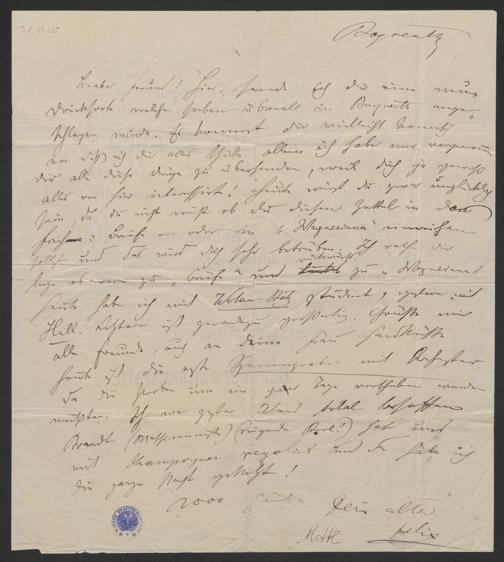 Bayreuth
Lieber Freund! Hier sende ich dir eine neue
welche soeben überall in Bayreuth ange-
schlagen wurde. Es kommt dir vielleicht komisch
vor daß ich dir alles schicke, allein ich habe mir vorgenommen
dir alle diese Dinge zu übersenden, weil dich ja gewiß
alles von hier interessirt! heute wirst du zwar unglücklich
sein, da du nicht weißt ob du diesen Zettel in das
Fach: Briefe – oder in Wagneriana einreihen
sollst und das wird dich sehr betrüben. Ich rathe dir
lege es zu "Briefe" und zu "Wagneriana"
heute habe ich mit studirt, gestern mit
Hill. Letzterer ist geradezu großartig. Grüße mir
alle Freunde, auch an deine Frau Handküsse
heute ist die erste Scenenprobe mit Orchester
da die Proben um ein paar Tage verschoben werden
mußten. Ich war gestern Abend total besoffen
Brandt (Maschinenmeister) Kerl!) hat uns
mit Champagner regalirt und da habe ich
die ganze Nacht gekotzt!
1000 Grüße Dein alter
Mottl Felix